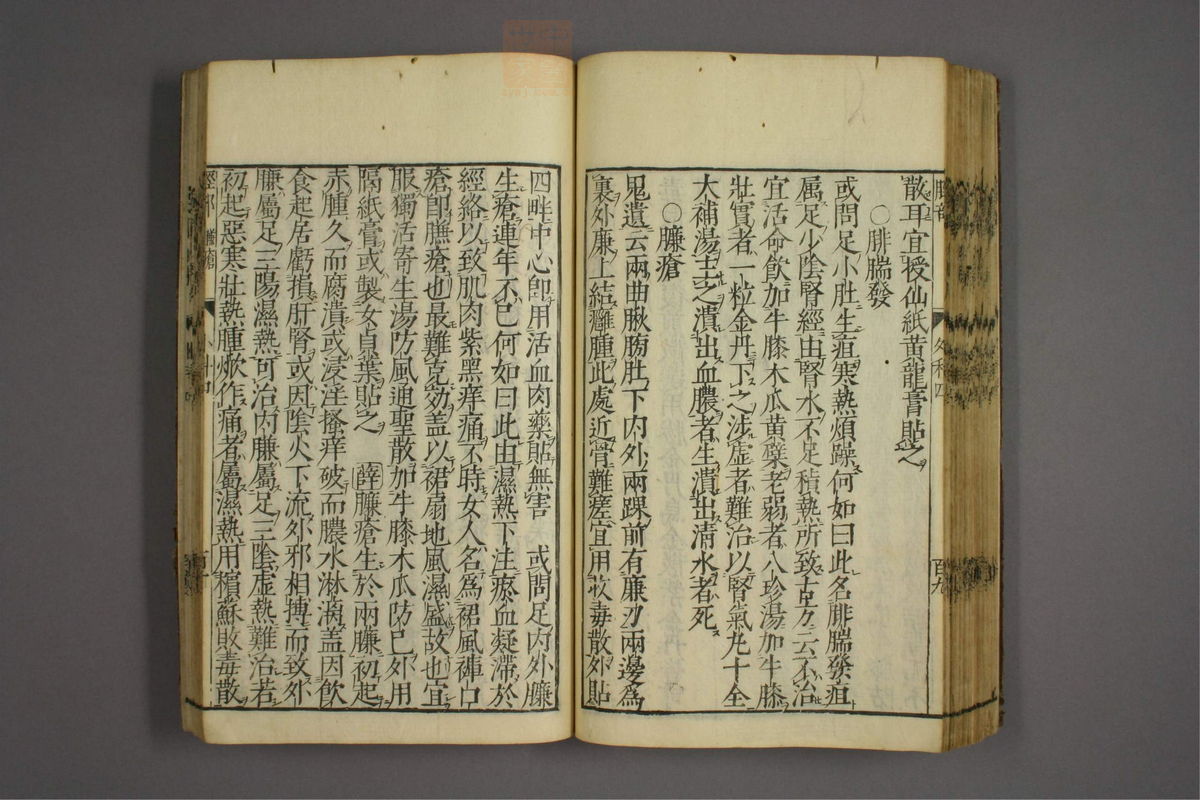 散耳宜授仙紙黄龍膏貼之
○腓腨發
或問足小肚生疽寒熱煩躁何如曰此名腓腨發疽
属足少陰腎經由腎水不足積熱所致古方云不治
宜活命飲加牛膝木瓜黄蘗老弱者八珍湯加牛膝
壯實者一粒金丹下之渉虚者難治以腎氣丸十全
大補湯主之潰出血膿者生潰出清水者死
○臁瘡
鬼遺云兩曲䐐肭肚下内外兩踝前有廉刃兩邊為
裏外廉上結癰腫此處近骨難瘥宜用收毒散外貼
四畔中心即用活血肉藥貼無害 或問足内外臁
生瘡連年不已何如曰此由濕熱下注瘀血凝滯於
經絡以致肌肉紫黑痒痛不時女人名為裙風褲口
瘡即臁瘡也最難克効盖以裙扇地風濕盛故也宜
服獨活寄生湯防風通聖散加牛膝木瓜防已外用
隔紙膏或製女貞葉貼之 薛臁瘡生於兩臁初起
赤腫久而腐潰或浸淫瘙痒破而膿水淋漓盖因飲
食起居虧損肝腎或因陰火下流外邪相搏而致外
臁屬足三陽濕熱可治内臁屬足三陰虚熱難治若
初起惡寒壯熱腫焮作痛者屬濕熱用檳蘇敗毒散